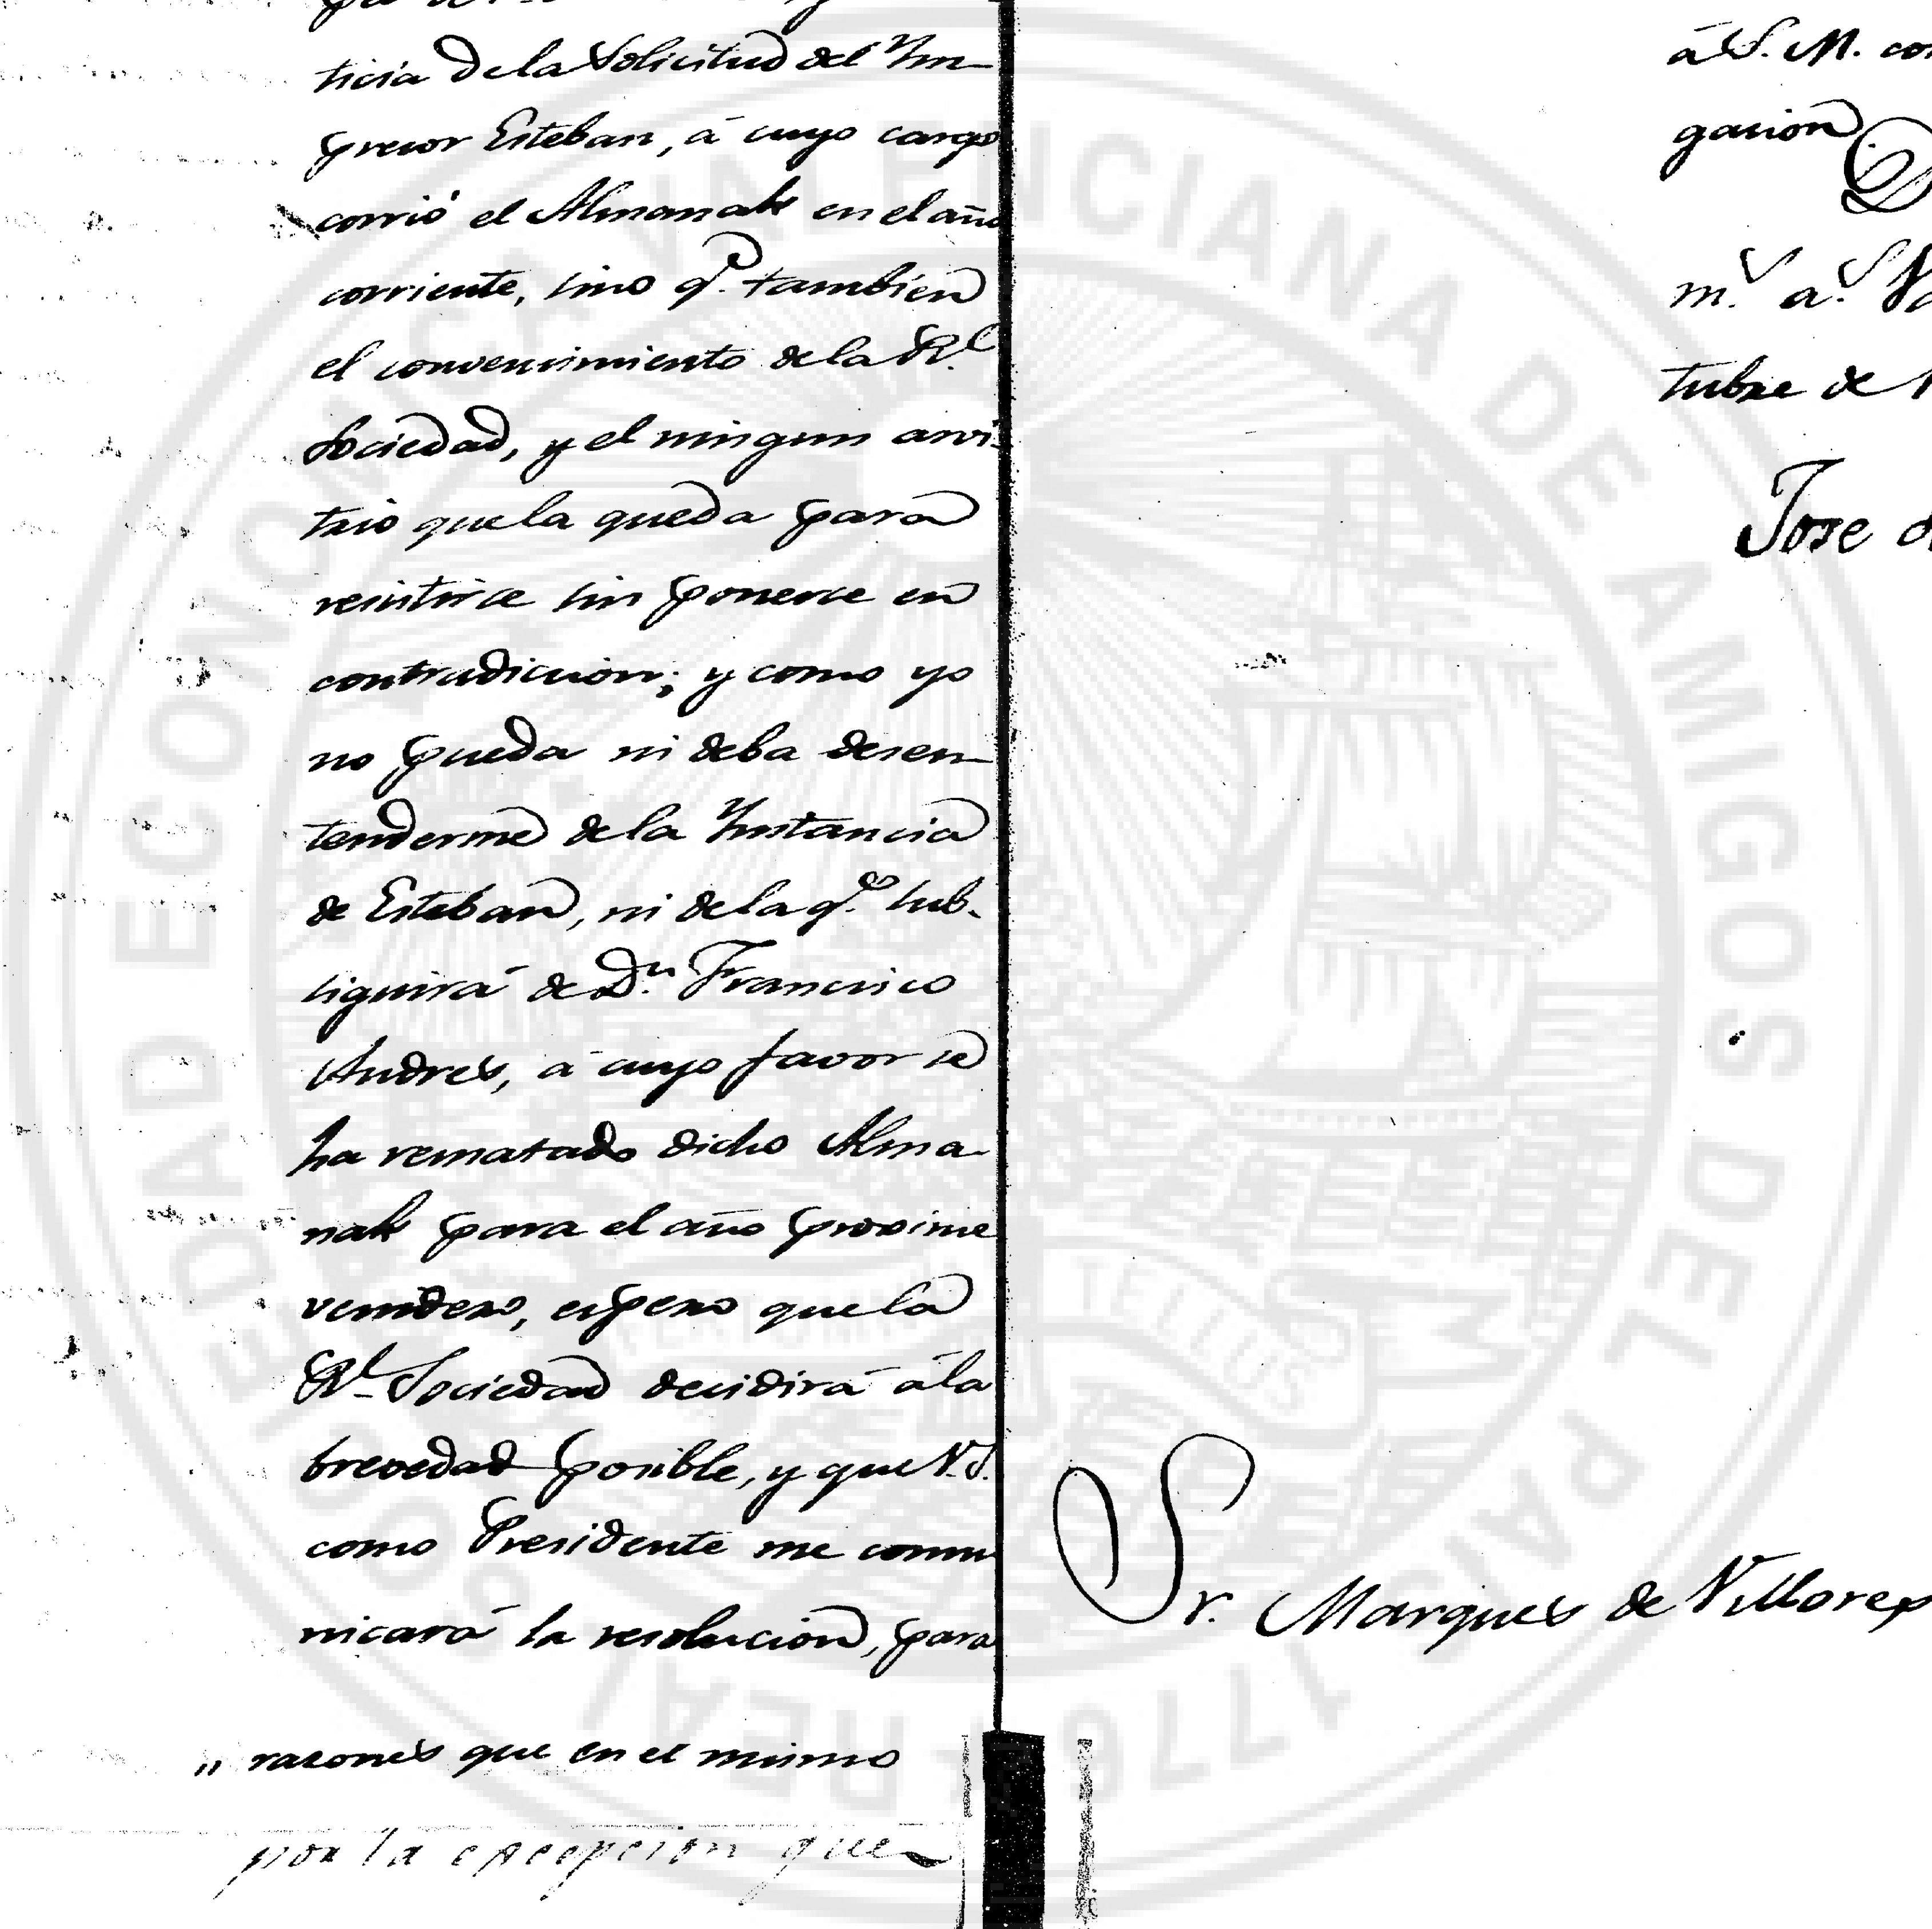 ticia de la Solicitud del Ym-
presor Esteban, á cuyo cargo
corrió el Almanak en el año
corriente, sino q.e tambien
el convencimiento de la R.l
Sociedad, y el ningun arvi-
trio que la queda para
resistirse sin ponerse en
contradiccion; y como yo
no pueda ni deba desen-
tenderme de la Ynstancia
de Esteban, ni de la q.e sub-
siguirá de D.n Francisco
Andres, á cuyo favor se
ha rematado dicho Alma-
nak para el año proximo
venidero, espero que la
R.l Sociedad decidirá á la
brevedad posible, y que V.S.
como Presidente me comu
nicará la resolucion, para
„ razones que en el mismo
por la excepcion que
á S. M. con
gacion D
m.s a.s Va
tubre de 1
Jose d
Sr. Marques de Villores
SOCIEDAD ECONOMICA VALENCIANA DE AMIGOS DEL PAIS
REAL 1776